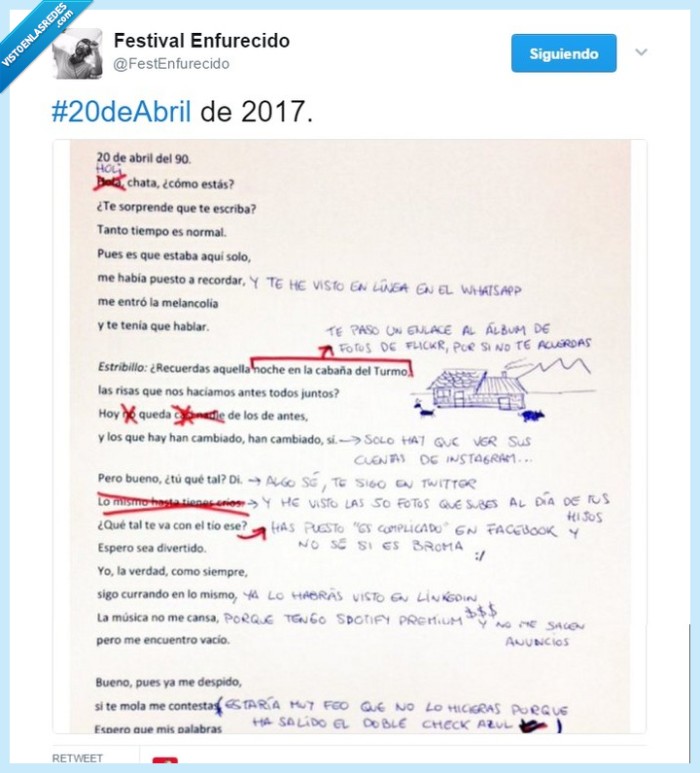 VISTOENLASREDES
.com
Festival Enfurecido
@FestEnfurecido
Siguiendo
#20deAbril de 2017.
20 de abril del 90.
HOLI
Hola, chata, ¿cómo estás?
¿Te sorprende que te escriba?
Tanto tiempo es normal.
Pues es que estaba aquí solo,
me había puesto a recordar, Y TE HE VISTO EN LÍNEA EN EL WHATSAPP
me entró la melancolía
y te tenía que hablar.
TE PASO UN ENLACE AL ÁLBUM DE
FOTOS DE FLICKR, POR SI NO TE ACUERDAS
Estribillo: ¿Recuerdas aquella noche en la cabaña del Turmo,
las risas que nos hacíamos antes todos juntos?
Hoy no queda casi nadie de los de antes,
y los que hay han cambiado, han cambiado, sí. → SOLO HAY QUE VER SUS
CUENTAS DE INSTAGRAM...
Pero bueno, ¿tú qué tal? Di. → ALGO SÉ, TE SIGO EN TWITTER
Lo mismo hasta tienes críos. → Y HE VISTO LAS 50 FOTOS QUE SUBES AL DÍA DE TUS
HIJOS
¿Qué tal te va con el tío ese? → HAS PUESTO "ES COMPLICADO" EN FACEBOOK Y
NO SÉ SI ES BROMA :/
Espero sea divertido.
Yo, la verdad, como siempre,
sigo currando en lo mismo, YA LO HABRÁS VISTO EN LINKEDIN
La música no me cansa, PORQUE TENGO SPOTIFY PREMIUM $$$ Y NO ME SALEN
ANUNCIOS
pero me encuentro vacío.
Bueno, pues ya me despido,
si te mola me contestas (ESTARÍA MUY FEO QUE NO LO HICIERAS PORQUE
HA SALIDO EL DOBLE CHECK AZUL )
Espero que mis palabras
RETWEET